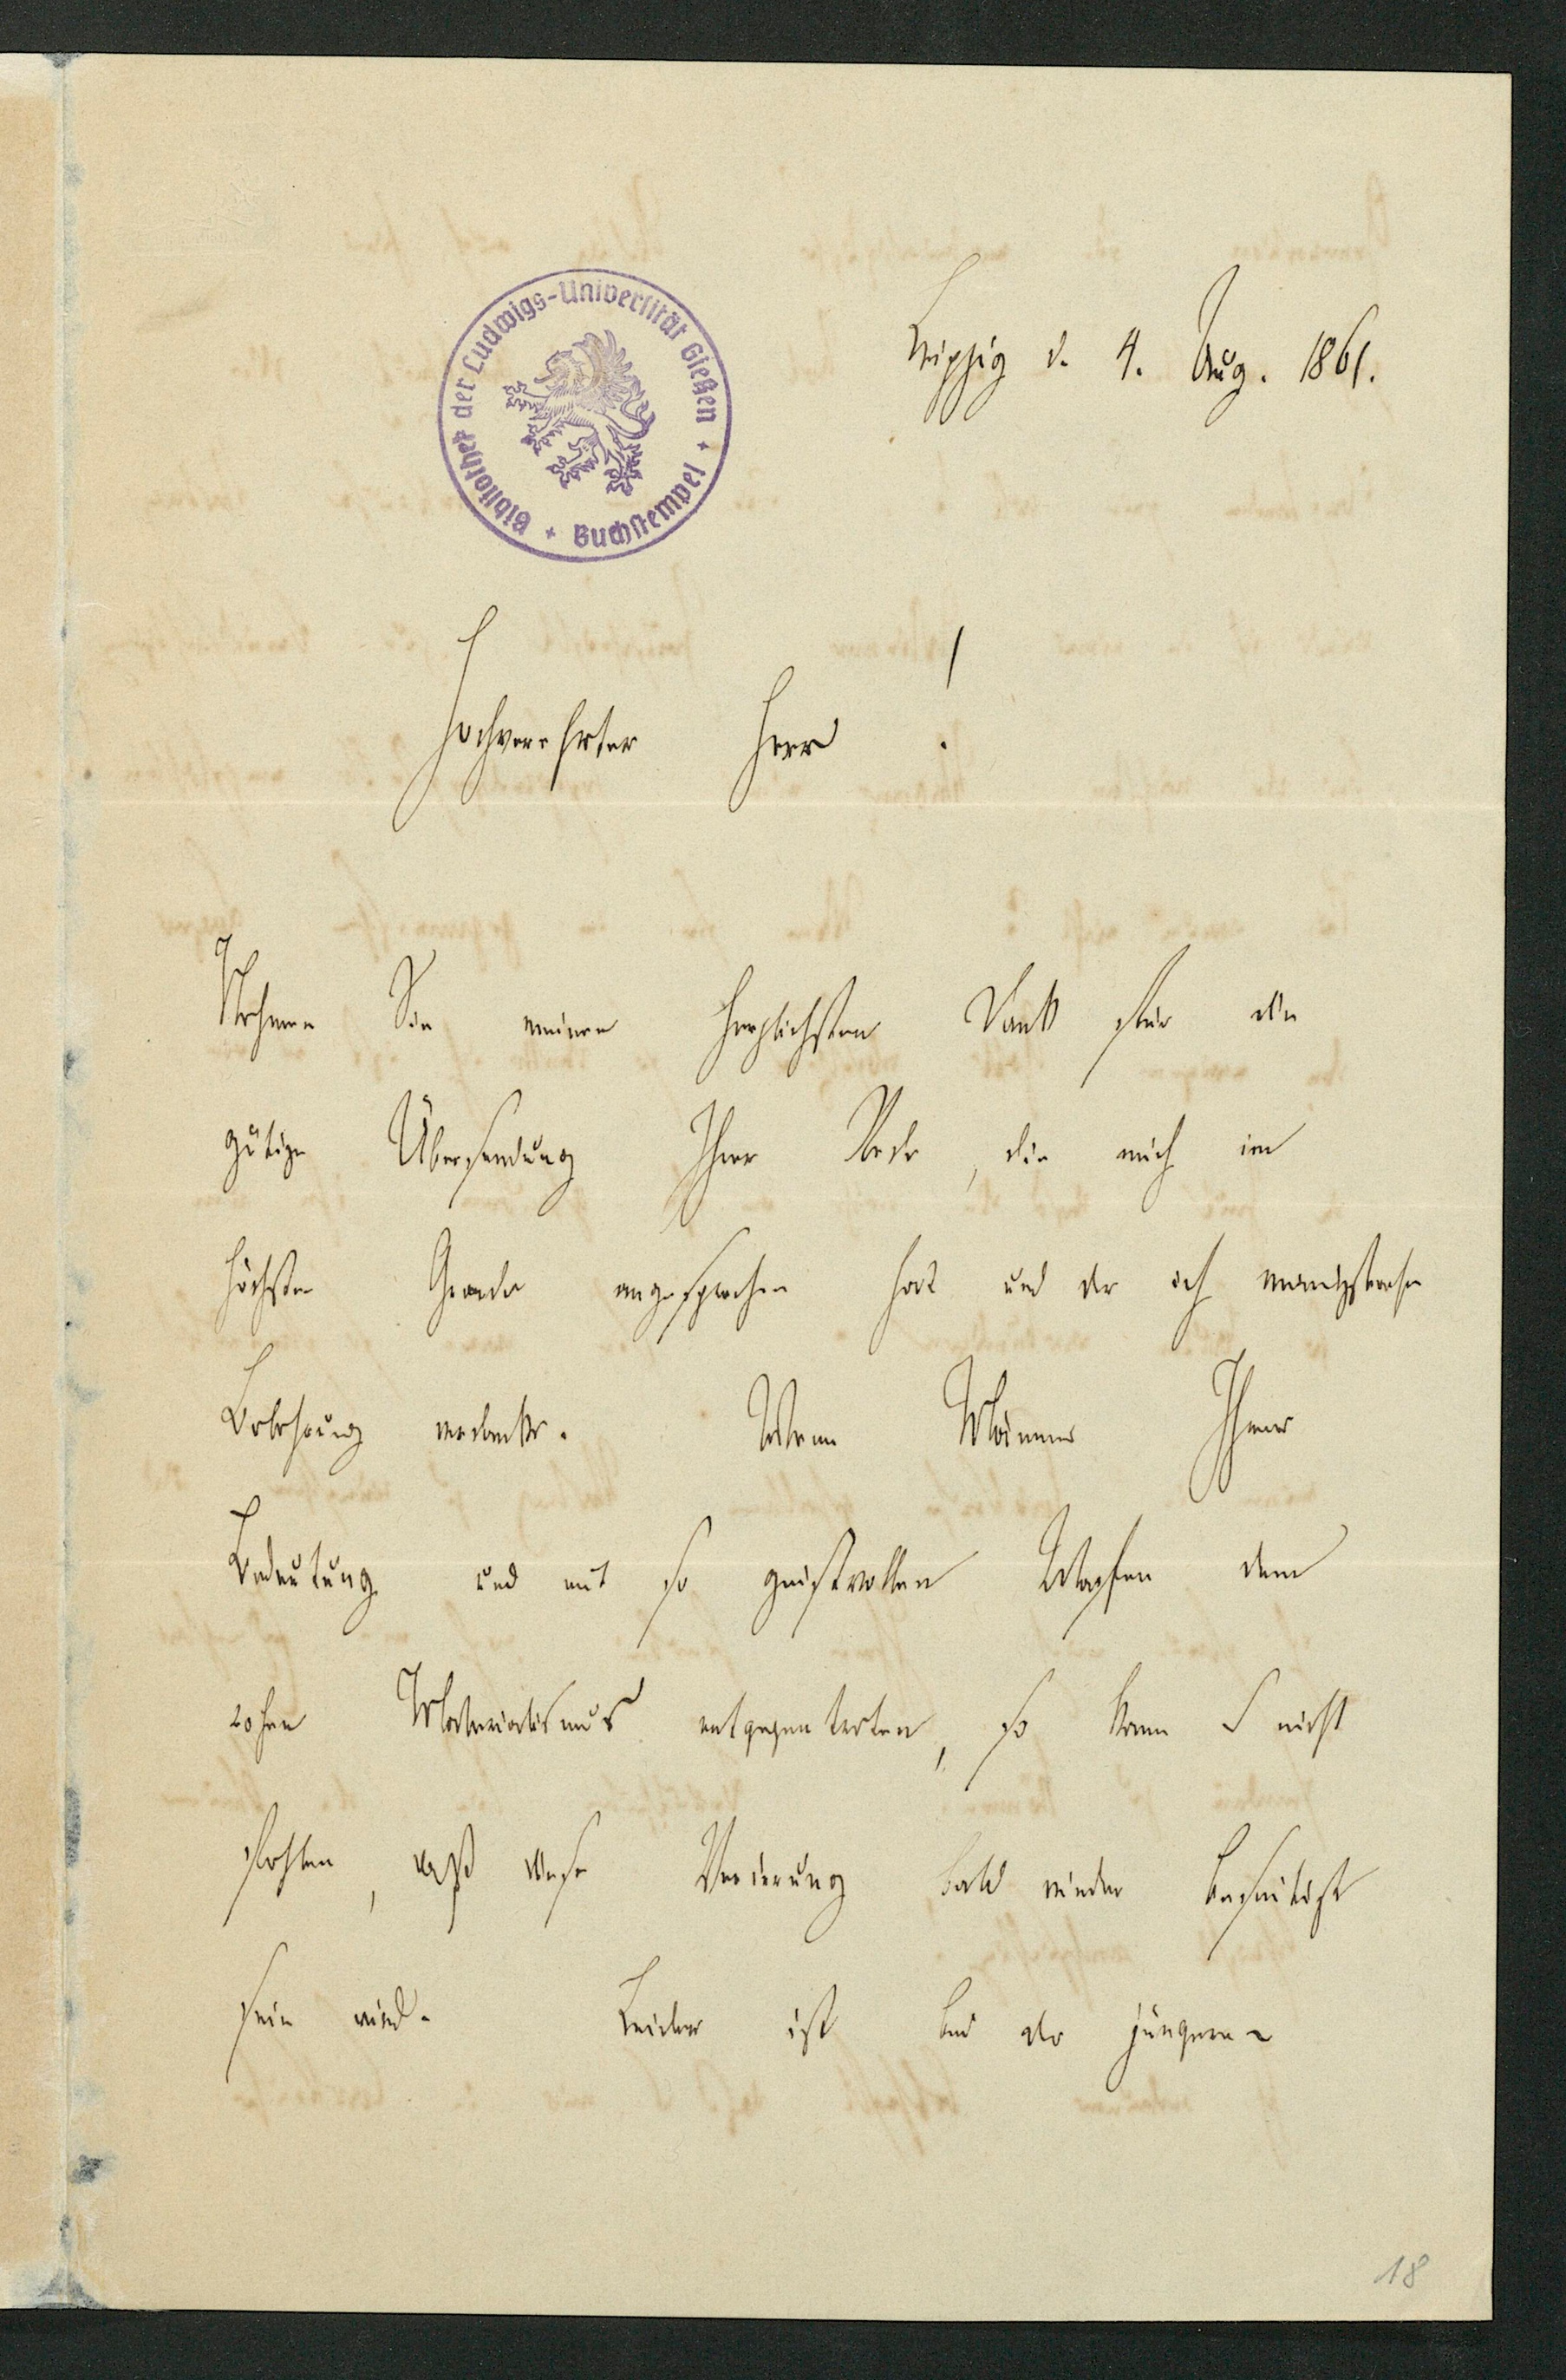 Leipzig d. 4. Aug. 1861.
Bibliothek der Ludwigs-Universität Gießen * Buchstempel *
Hochverehrter Herr !
Nehmen Sie meinen herzlichsten Dank für die
gütige Übersendung Ihrer Rede, die mich im
höchsten Grade angesprochen hat und der ich mannigfache
Belehrung verdanke. Wenn Männer Ihrer
Bedeutung und mit so geistvollen Waffen dem
rohen Materialismus entgegentreten, so kann es nicht
fehlen, daß diese Verirrung bald wieder beseitigt
sein wird. Leider ist bei der jüngeren
18